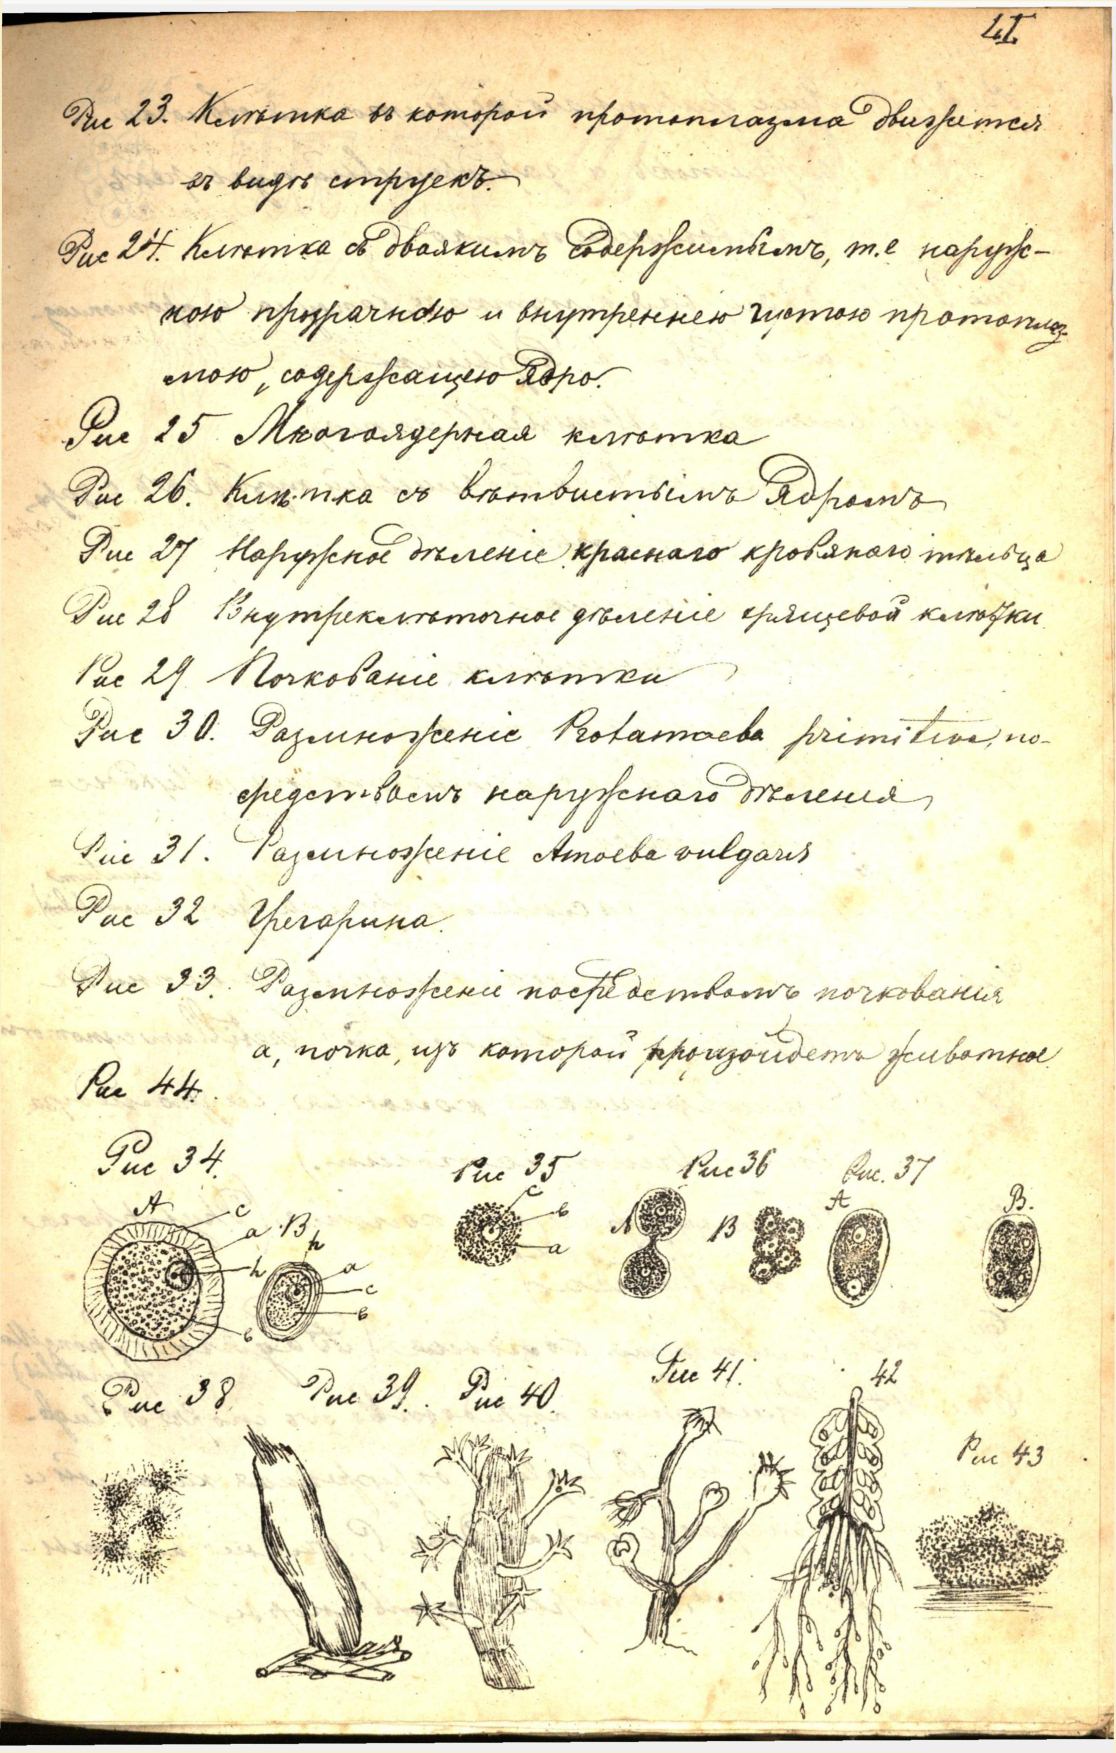 Рис 23. Клѣтка въ которой протоплазма движется
въ видѣ струекъ.
Рис 24. Клѣтка съ двоякимъ содержимымъ, т.е наруж-
ною прозрачною и внутреннею густою протоплаз-
мою, содержащею Ядро.
Рис 25 Многоядерная клѣтка
Рис 26. Клѣтка съ вѣтвистымъ Ядромъ
Рис 27 Наружное дѣленіе краснаго кровянаго тѣльца
Рис 28 Внутреклѣточное дѣленіе хрящевой клѣтки
Рис 29 Почкованіе клѣтки
Рис 30. Размноженіе Protamaeba primitiva, по-
средствомъ наружнаго дѣленія
Рис 31. Размноженіе Amoeba vulgaris
Рис 32 Грегарина.
Рис 33. Размноженіе посредствомъ почкованія
а, почка, изъ которой произойдетъ животное
Рис 44.
Рис 34. Рис 35 Рис 36 Рис. 37
A c a b h B h a c b
c b a
A B
A B.
Рис 38 Рис 39. Рис 40. Рис 41. 42
Рис 43